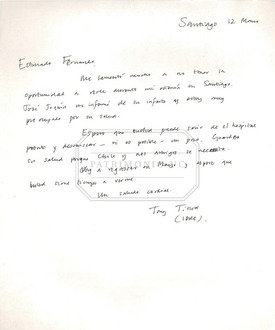 Santiago 12 Marzo
Estimado Fernando,
Me lamento mucho a no tener la
oportunidad a verle durante mi visita en Santiago.
José Joaquín me informó de su infarto y estoy muy
preocupado por su salud.
Espero que usted puede salir de el hospital
pronto y descansar – si es posible – un poco. Guarda
su salud porque Chile y sus amigos le necesita.
Voy a regresar en Mayo y espero que
usted tiene tiempo a verme.
Un saludo cordial.
PATRIMONIO